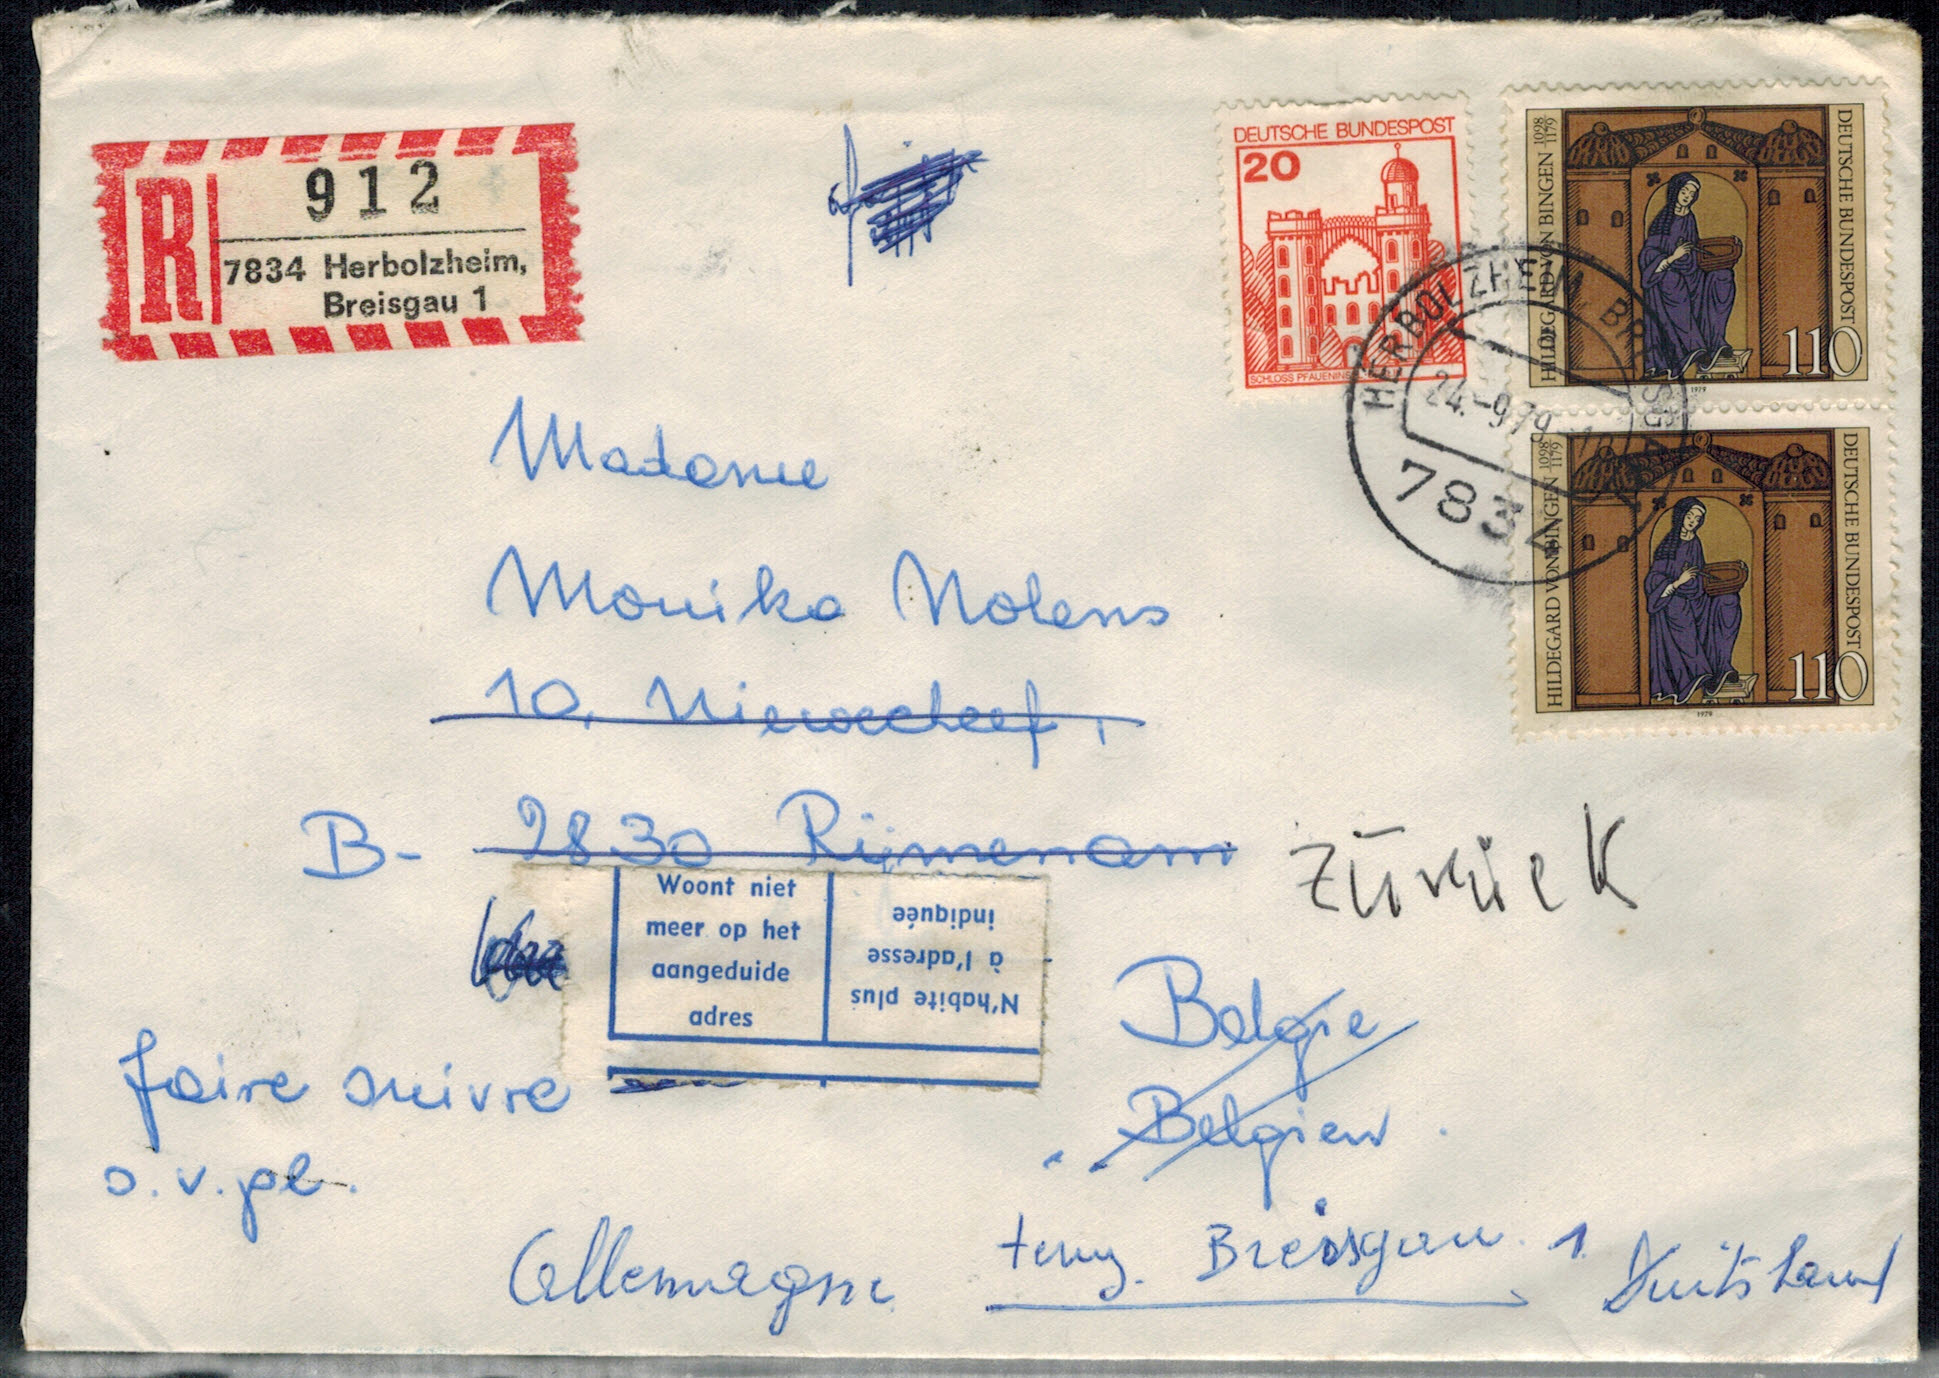 R
912
7834 Herbolzheim,
Breisgau 1
DEUTSCHE BUNDESPOST
20
SCHLOSS PFAUENINS
HILDEGARD VON BINGEN 1098 1179
DEUTSCHE BUNDESPOST
110
1979
HERBOLZHEIM, BREISGAU
24.-9.79-18
7834
HILDEGARD VON BINGEN 1098 1179
DEUTSCHE BUNDESPOST
110
1979
Madame
Monika Nolens
10,
B- 2830 Rijmenam
zurück
Woont niet
meer op het
aangeduide
adres
N'habite plus
à l'adresse
indiquée
Belgie
Belgien
faire suivre
s.v.pl.
Allemagne
terug. Breisgau. 1 Duitsland